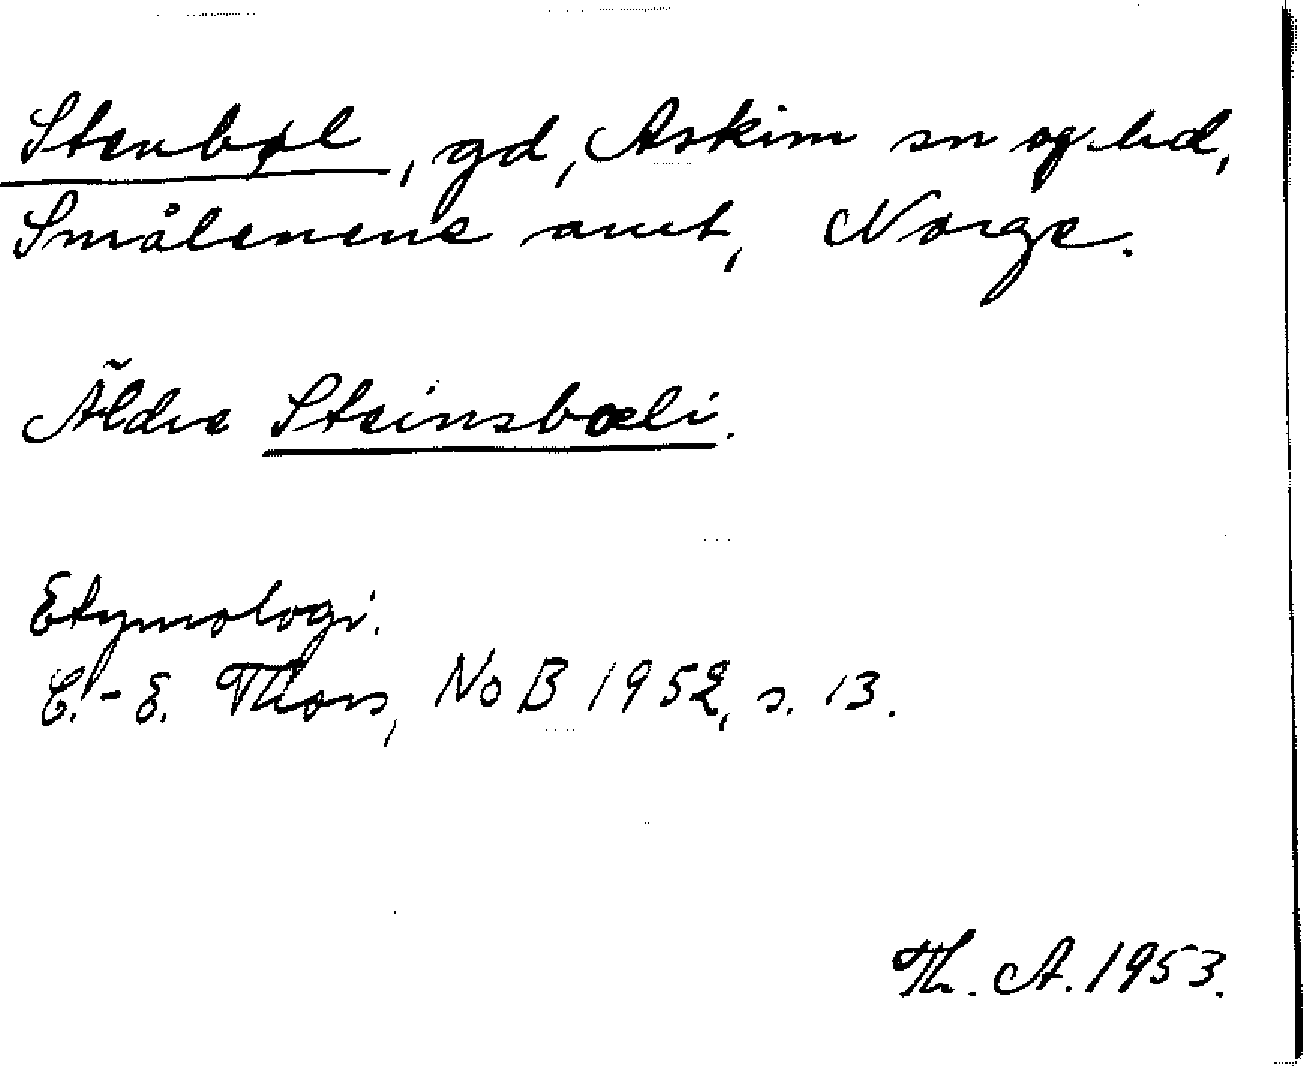 Stenbøl, gd, Askim sn og hd,
Smålenene amt, Norge.
Äldre Steinsbœli.
Etymologi.
C.-E. Thors, NoB 1952, s. 13.
Th. A. 1953.